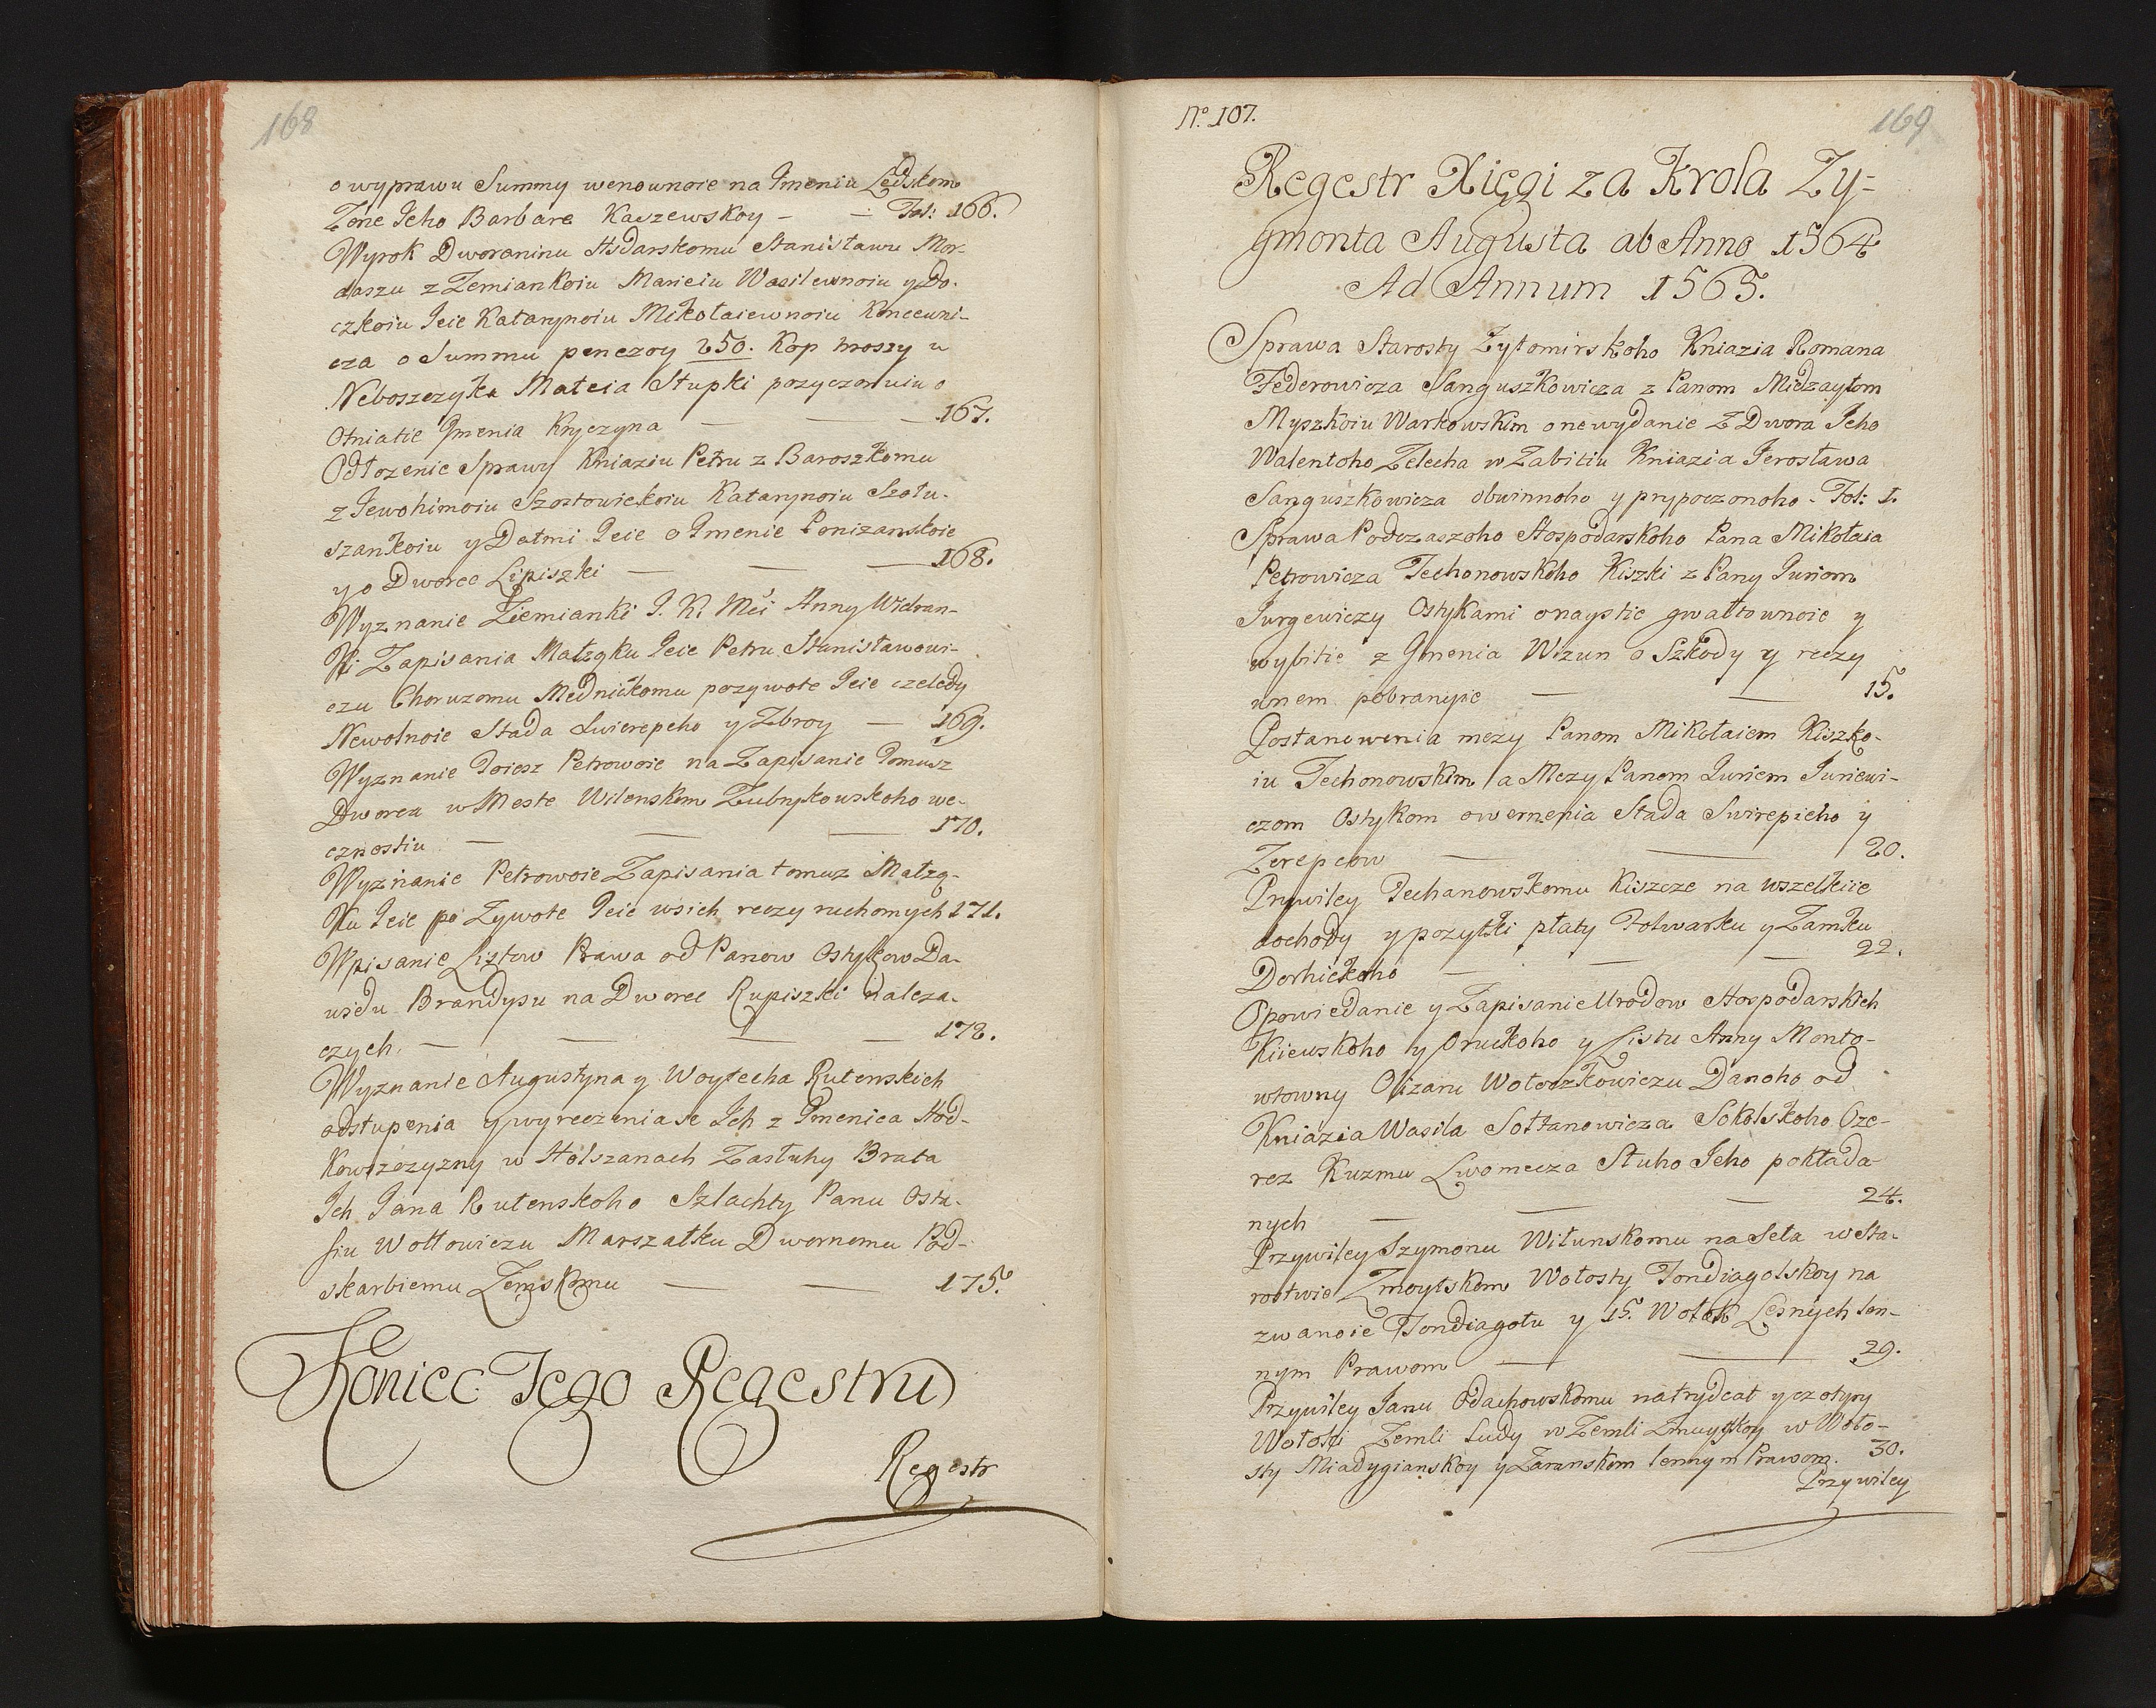 168
o wyprawu Summy wenounoie na Imeniu Ledskom
Zone Jeho Barbare Kaszewskoy - - Fol: 166.
Wyrok Dworaninu Hsdarskomu Stanisławu Mor-
daszu z Zemiankoiu Marieiu Wasilewnoiu y Do-
czkoiu Jeie Katarynoiu Mikołaiewnoiu Koncewi-
cza o Summu penezoy 250. Kop hroszy u
Neboszczyka Mateia Stupki pozyczonuiu o
Otniatie Imenia Knyczyna — — — 167.
Odłozenie Sprawy Kniaziu Petru z Baroszkomu
z Jewohimoiu Szostowickoiu Katarynoiu Szołu-
szankoiu y Detmi Jeie o Imenie Ponizanskoie
y o Dworec Lipiszki — — — 168.
Wyznanie Ziemianki J. K. Mći Anny Widran-
Ki Zapisania Małzqku Jeie Petru Stanisławowi-
czu Choruzomu Mednickomu pozywote Jeie czeledy
Newolnoie Stada Swierepeho y Zbroy — 169.
Wyznanie Petrowoie na Zapisanie Tomusz
Dworca w Meste Wilenskom Zubrykowskoho we-
cznostiu — — — 170.
Wyznanie Petrowoie Zapisania tomuz Małzq-
Ku Jeie po Zywote Jeie wsich reczy ruchomych 171.
Wpisanie Listow Prawa od Panow Ostykow Da-
widu Brandysu na Dworec Rupiszki należa-
czych. — — — — 172.
Wyznanie Augustyna y Woytecha Rutenskich
odstupenia y wyreczenia se Ich z Imenica Hod-
Kowszczyzny w Holszanach Zasłuhy Brata
Ich Jana Rutenskoho Szlachty Panu Osta-
fiu Wołłowiczu Marszałku Dwornomu Pod-
skarbiemu Zemskomu — — 175.
Koniec Tego Regestru
Regestr
No. 107.
169
Regestr Xięgi za Krola Zy-
gmonta Augusta ab Anno 1564
Ad Annum 1565.
Sprawa Starosty Zytomirskoho Kniazia Romana
Federowicza Sanguszkowicza z Panom Midzaytom
Myszkoiu Warkowskim o newydanie z Dwora Jeho
Walentoho Zelecha w Zabitiu Kniazia Jerosława
Sanguszkowicza obwinnoho y prypoczonoho - Fol: 1.
Sprawa Podczaszoho Hospodarskoho Pana Mikołaia
Petrowicza Techonowskoho Kiszki z Pany Juriom
Jurgewiczy Ostykami o nayste gwałtownoie y
wybitie z Imenia Wizun o Szkody y reczy
unem pobranyie — — 15.
Postanowenia mezy Panom Mikołaiem Kiszko-
iu Techonowskim a Mezy Panem Juriem Juriewi-
czom Ostykom o wernenia Stada Swirepieho y
Zerepcow — — 20.
Prywiley Techanowskomu Kiszcze na wszelkiie
dochody y pozytki płaty Folwarku y Zamku
Dorhickoho — — — 22.
Opowiedanie y Zapisanie Urodow Hospodarskich
Kiiewskoho y Owruckoho y Listu Anny Monto-
wtowny Olizaru Wołoszkowiczu Danoho od
Kniazia Wasila Sołtanowicza Sokolskoho Cze-
rez Kuzmu Lwomecza Słuho Jeho pokłada-
nych — — — 24.
Przywiley Szymonu Wilunskomu na Seła w Sta-
rostwie Zmoytskom Wołosty Tondiagolskoy na
zwanoie Tondiagołu y 15. Wołok Lesnych len-
nym Prawom — — 29.
Przywiley Janu Odachowskomu na trydcat y czotyry
Wołoki Zemli Ludy w Zemli Zmuytskoy w Woło-
sty Miadygianskoy y Zaranskom lennym Prawom. 30.
Przywiley